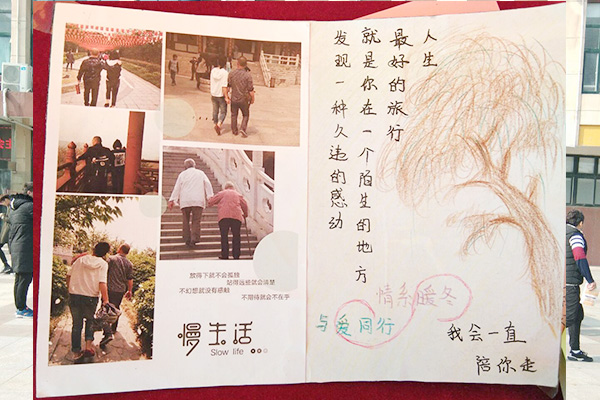 放得下就不会孤独
站得远些就会清楚
不幻想就没有感触
不期待就会不在乎
慢生活
Slow life
人生
最好的旅行
就是你在一个陌生的地方
发现一种久违的感动
情系暖冬
与爱同行
我会一直
陪你走